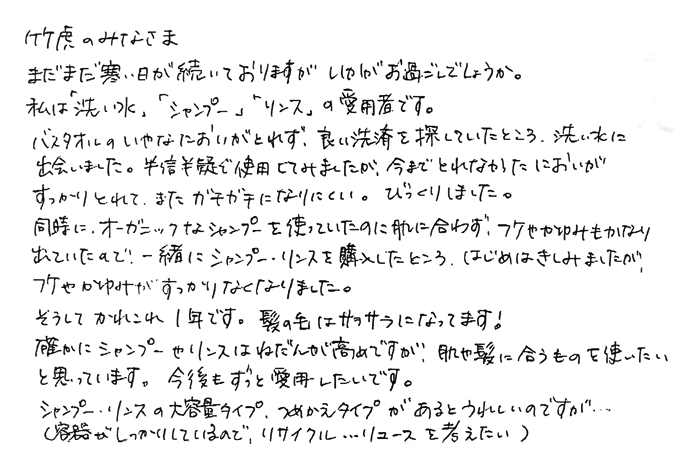 竹虎のみなさま
まだまだ寒い日が続いておりますが いかがお過ごしでしょうか。
私は「洗い水」「シャンプー」「リンス」の愛用者です。
バスタオルのいやなにおいがとれず、良い洗済を探していたところ、洗い水に
出会いました。半信半疑で使用してみましたが、今までとれなかったにおいが
すっかりとれて、また ガチガチになりにくい。びっくりしました。
同時に、オーガニックなシャンプーを使っていたのに肌に合わず、フケやかゆみもかなり
出ていたので、一緒にシャンプー・リンスを購入したところ、はじめはきしみましたが、
フケやかゆみがすっかりなくなりました。
そうして かれこれ 1年です。髪の毛はサラサラになってます!
確かにシャンプーやリンスはねだんが高めですが、肌や髪に合うものを使いたい
と思っています。今後もずっと愛用したいです。
シャンプー・リンスの大容量タイプ、つめかえタイプがあるとうれしいのですが…
(容器がしっかりしているので、リサイクル…リユースを考えたい)